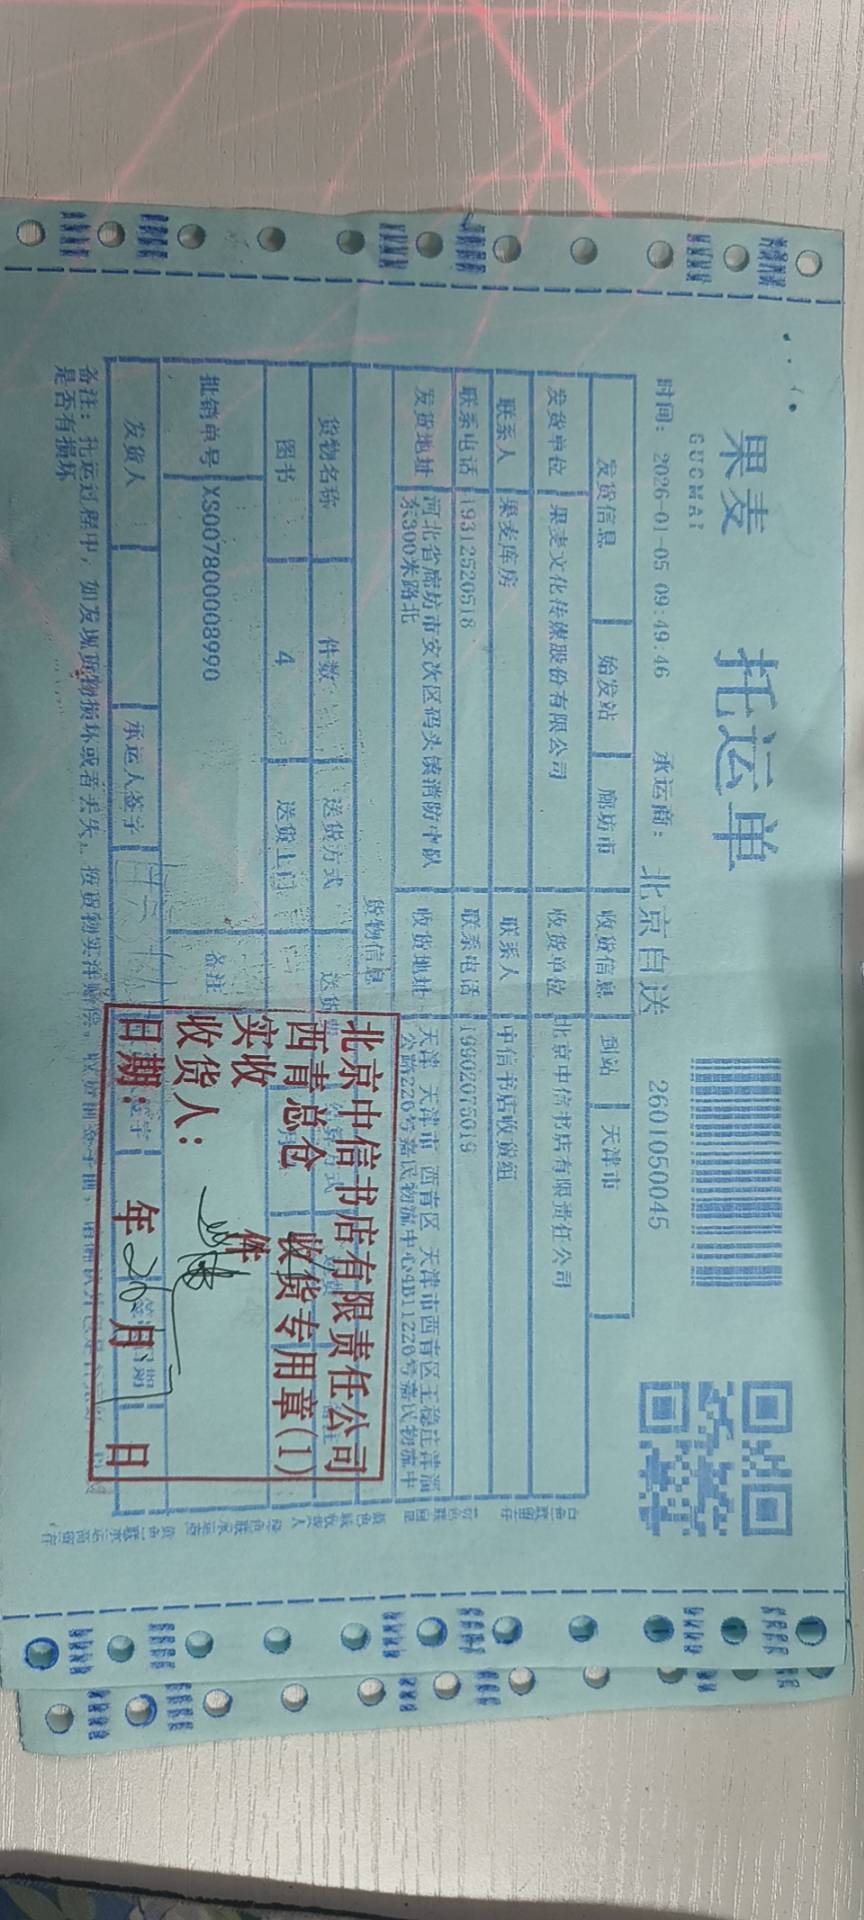 果麦
GUOMAI
托运单
时间: 2026-01-05 09:49:46 承运商: 北京自送 2601050045
发货信息 始发站 廊坊市 收货信息 到站 天津市
发货单位 果麦文化传媒股份有限公司 收货单位 北京中信书店有限责任公司
联系人 果麦库房 联系人 中信书店收货组
联系电话 19312520518 联系电话 19902075019
发货地址 河北省廊坊市安次区码头镇消防中队东300米路北 收货地址 天津 天津市 西青区 天津市西青区王稳庄津淄公路226号嘉民物流中心
货物信息
货物名称 件数 送货方式
图书 4 送货上门
批销单号 XS007800008990 备注
发货人 承运人签字
备注: 托运过程中, 如发现货物损坏或者丢失, 按货物实洋赔偿。
是否有损坏
北京中信书店有限责任公司
西青总仓 收货专用章(1)
实收 件
收货人:
日期: 年 26 月 日